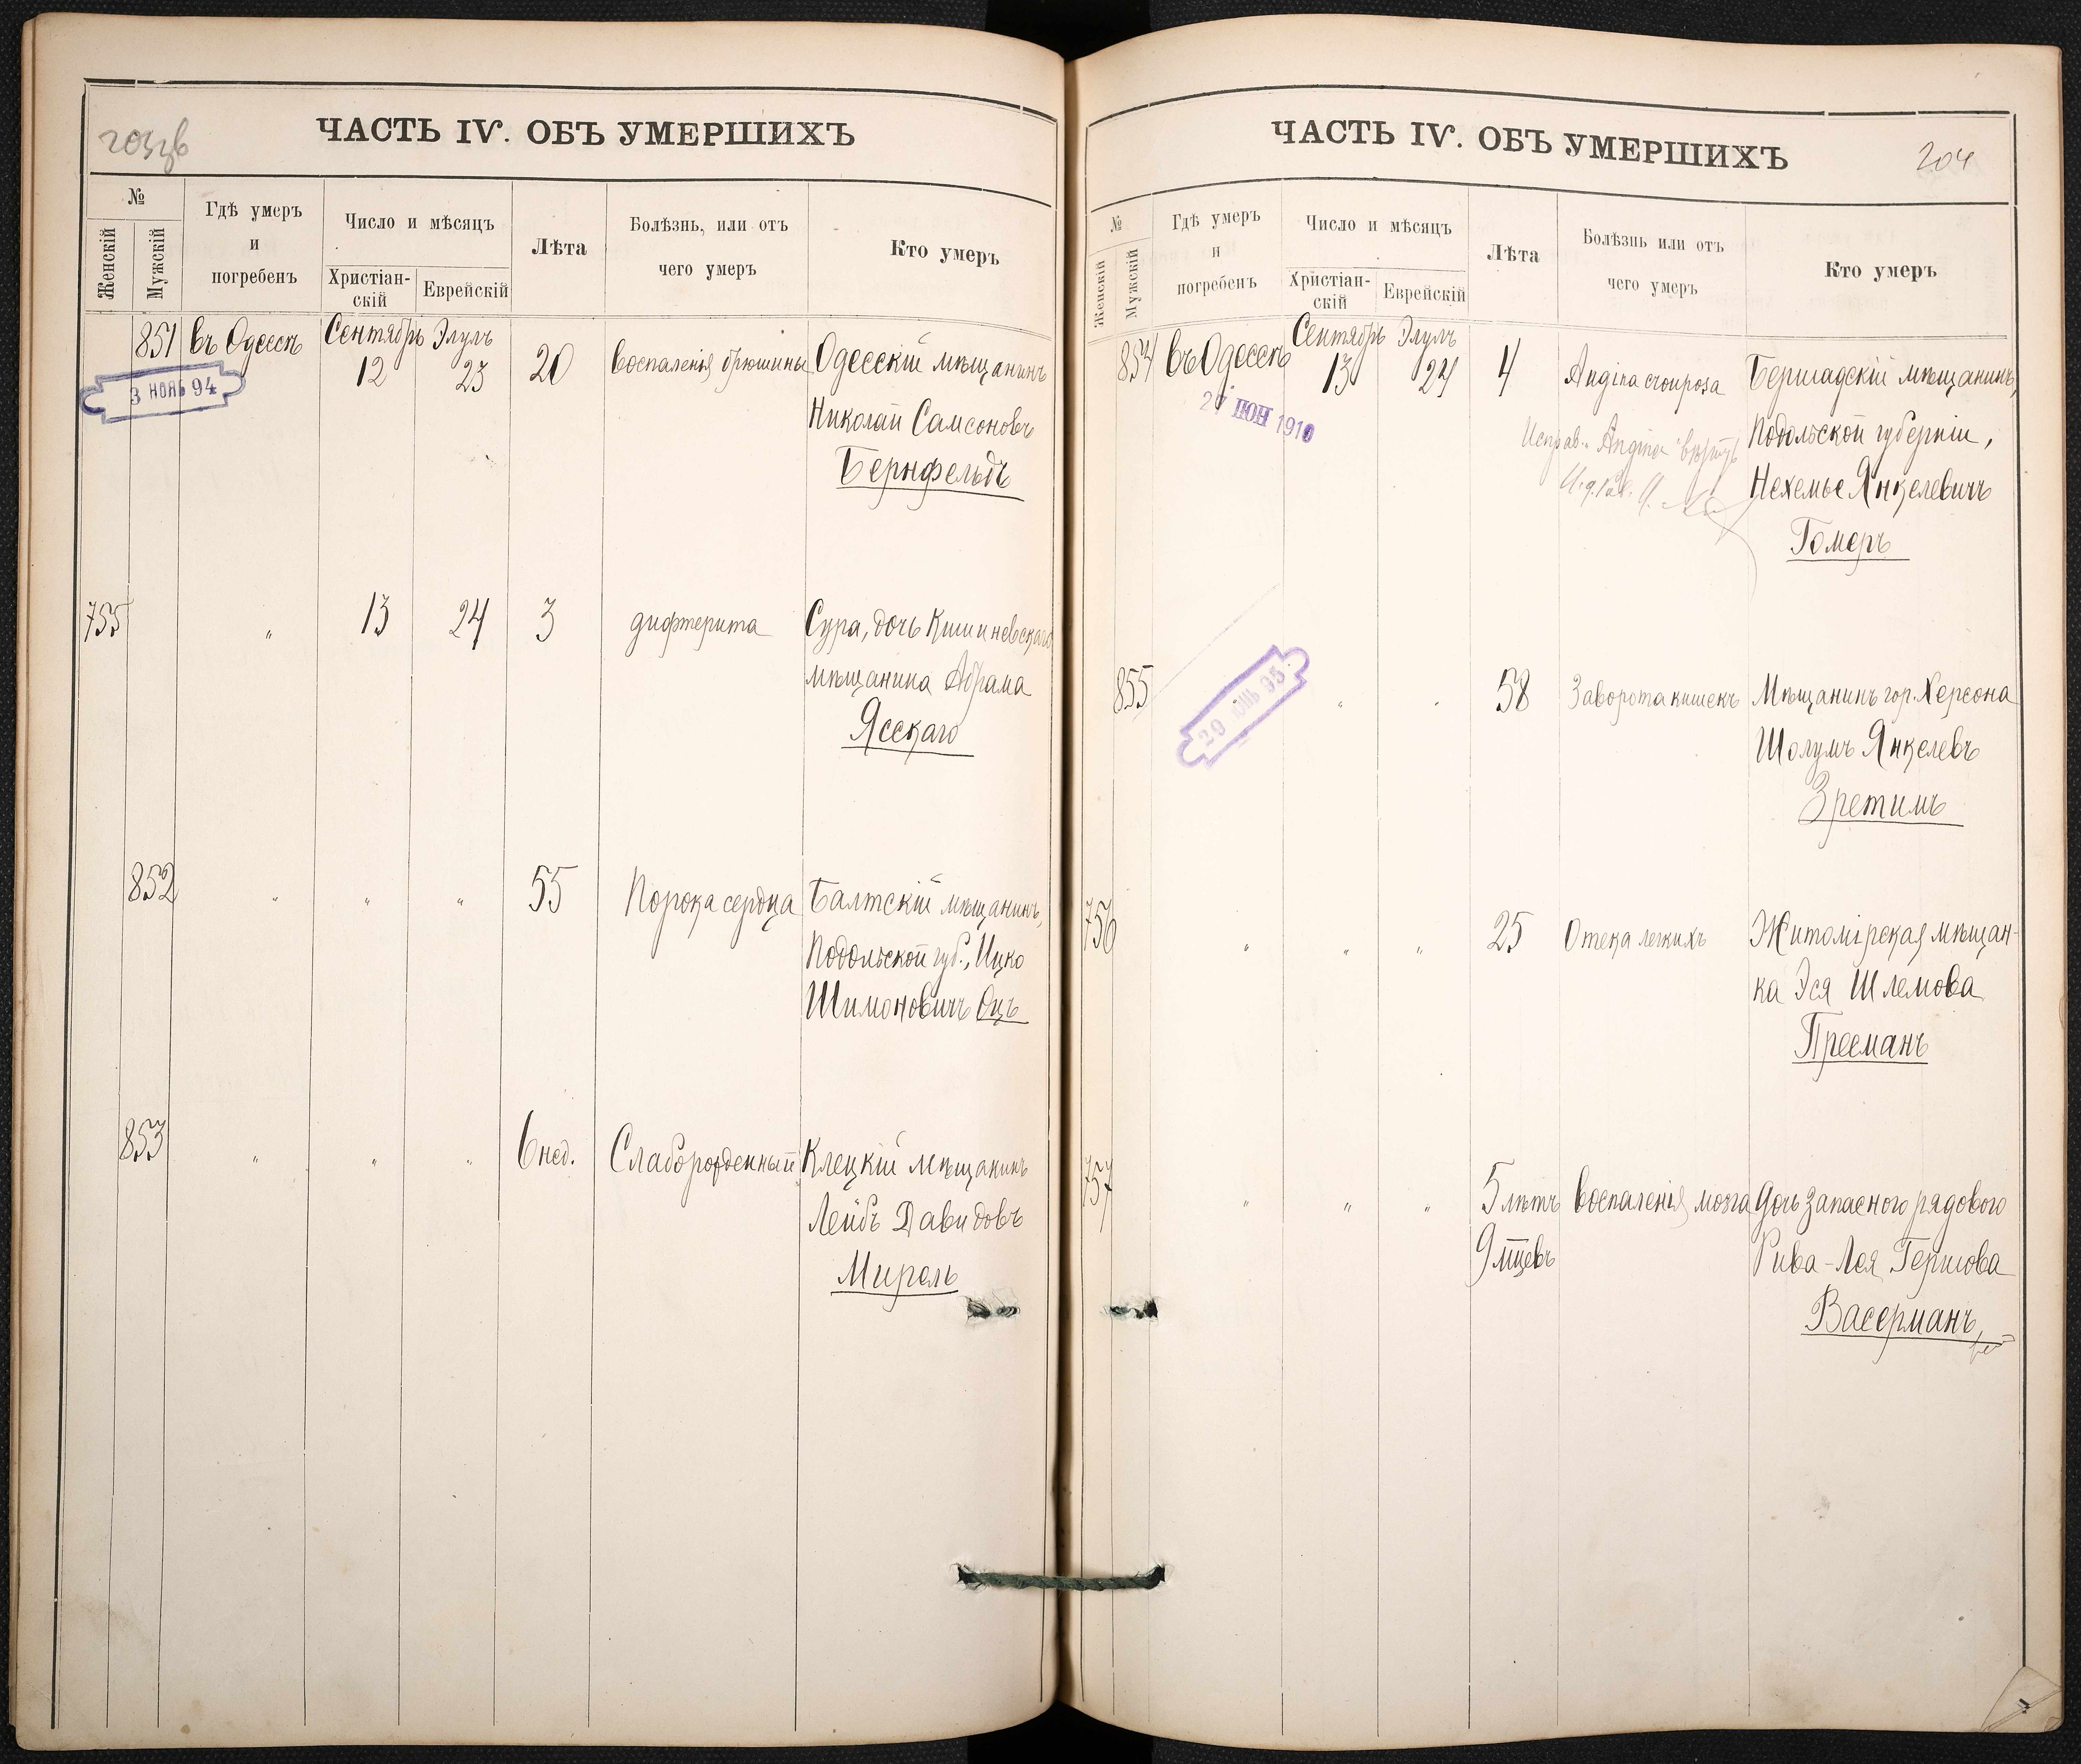 203 об
ЧАСТЬ IV. ОБЪ УМЕРШИХЪ
№
Женскій
Мужскій
Гдѣ умеръ
и
погребенъ
Число и мѣсяцъ
Христіан-
скій
Еврейскій
Лѣта
Болѣзнь, или отъ
чего умеръ
Кто умеръ
851 въ Одессѣ Сентябрь Элулъ
12 23 20 воспаленія брюшины Одесскій мѣщанинъ
3 НОЯБ 94
Николай Самсоновъ
Бернфельдъ
755 " 13 24 3 дифтерита Сура, дочь Кишиневскаго
мѣщанина Абрама
Ясскаго
852 " " " 55 Порока сердца Балтскій мѣщанинъ,
Подольской губ., Ицко
Шимоновичъ Оцъ
853 " " " 6 нед. Слаборожденный Клецкій мѣщанинъ
Лейбъ Давидовъ
Мирель
ЧАСТЬ IV. ОБЪ УМЕРШИХЪ
204
№
Женскій
Мужскій
Гдѣ умеръ
и
погребенъ
Число и мѣсяцъ
Христіан-
скій
Еврейскій
Лѣта
Болѣзнь или отъ
чего умеръ
Кто умеръ
854 въ Одессѣ Сентябрь Элулъ
13 24 4 Angina crouposa Бершадскій мѣщанинъ,
27 ИЮН 1910
Исправ. "Angina" вѣрно
Подольской губерніи,
Нехемье Янкелевичъ
Гомеръ
855 " " 58 Заворота кишекъ Мѣщанинъ гор. Херсона
29 95
Шолумъ Янкелевъ
Зретимъ
756 " " " 25 Отека легкихъ Житомірская мѣщан-
ка Эся Шлемова
Пресманъ
757 " " " 5 лѣтъ воспаленія мозга Дочь запаснаго рядового
9 мцевъ Рива-Лея Гершова
Васерманъ,